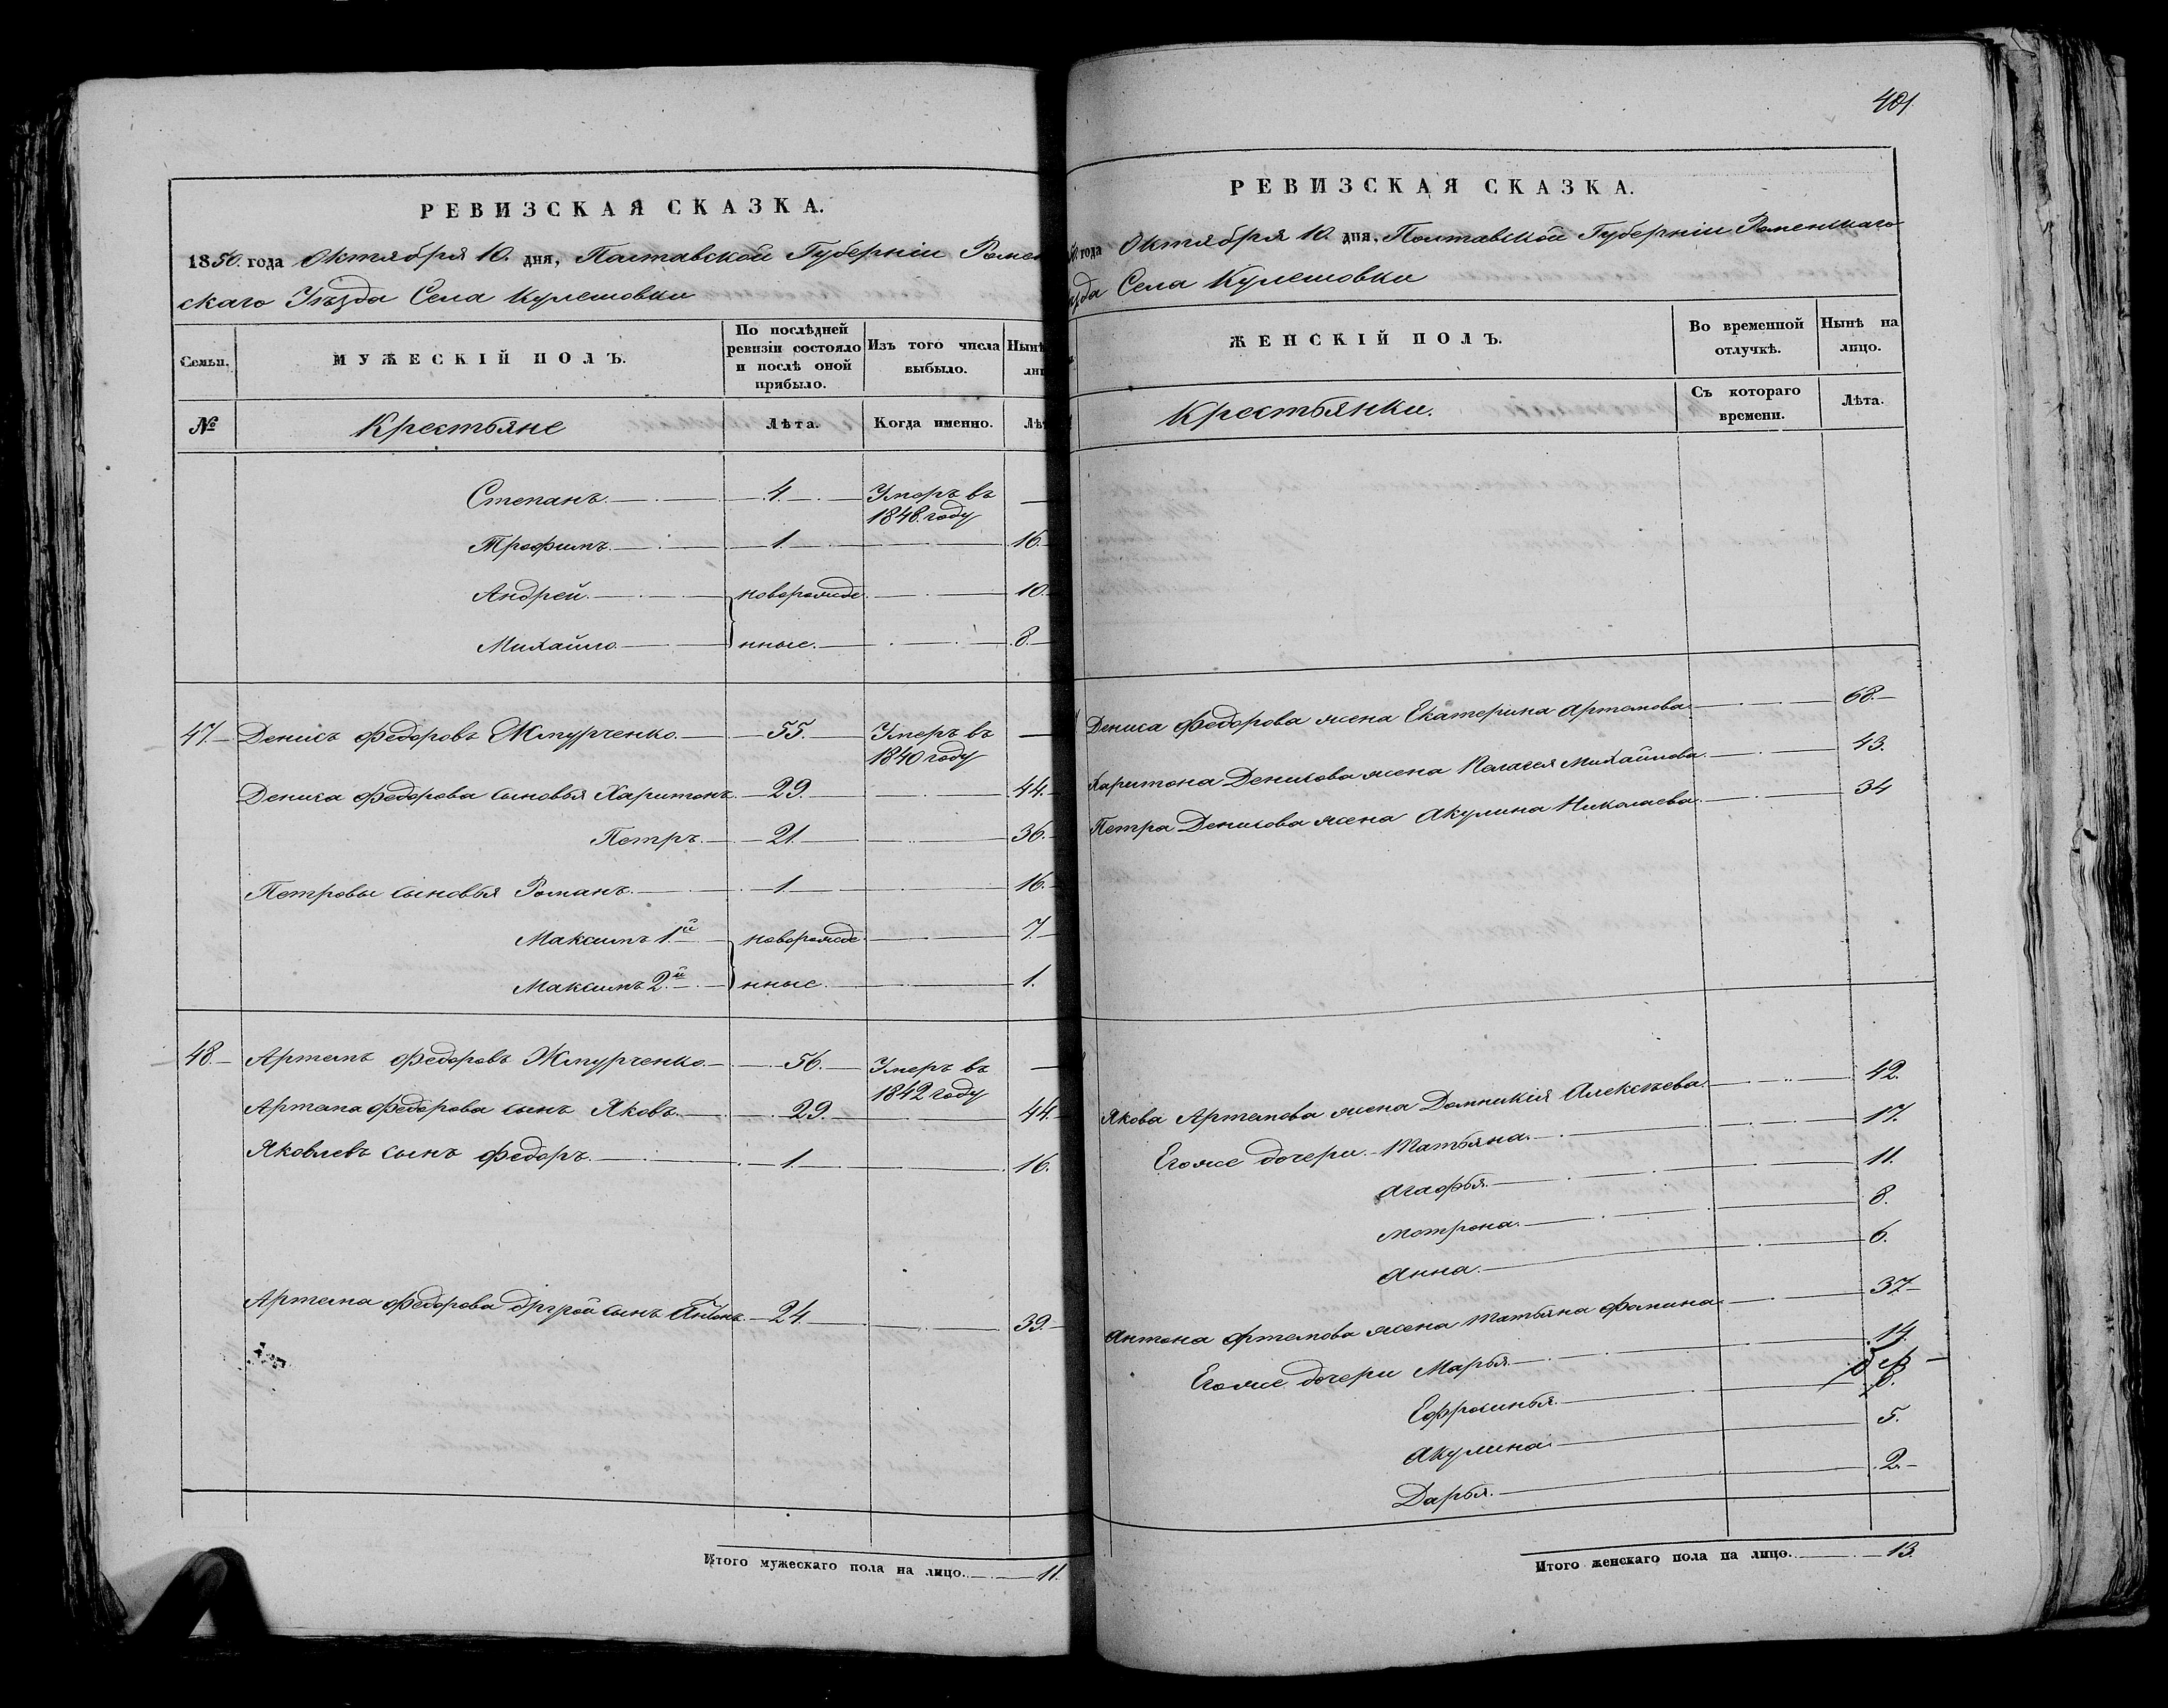 РЕВИЗСКАЯ СКАЗКА.
1850. года Октября 10. дня, Полтавской Губерніи Ромен
скаго Уѣзда Села Кулешовки
Семьи.
МУЖЕСКІЙ ПОЛЪ.
По послѣдней
ревизіи состояло
и послѣ оной
прибыло.
Изъ того числа
выбыло.
Нынѣ
ли
№
Крестьяне
Лѣта.
Когда именно.
Лѣт
Степанъ. 4. Умеръ въ
1848. году
Трофимъ. 1. 16.
Андрей. новорожде 10.
Михайло. нные. 8.
47. Денисъ Федоровъ Жмурченко. 55. Умеръ въ
1840 году
Дениса Федорова сыновья Харитонъ. 29. 44.
Петръ. 21. 36.
Петровы сыновья Романъ. 1. 16.
Максимъ 1.й новорожде 7.
Максимъ 2.й нные. 1.
48. Артемъ Федоровъ Жмурченко. 56. Умеръ въ
1842 году
Артема Федорова сынъ Яковъ. 29. 44.
Яковлевъ сынъ Федоръ. 1. 16.
Артема Федорова другой сынъ Антонъ. 24. 39.
Итого мужескаго пола на лицо. 11.
401
РЕВИЗСКАЯ СКАЗКА.
50. года Октября 10. дня, Полтавской Губерніи Роменскаго
ѣзда Села Кулешовки
ЖЕНСКІЙ ПОЛЪ.
Во временной
отлучкѣ.
Нынѣ на
лицо.
Крестьянки.
Съ котораго
времени.
Лѣта.
Дениса Федорова жена Екатерина Артемова. 68.
Харитона Денисова жена Пелагея Михайлова. 43.
Петра Денисова жена Акулина Николаева. 34
Якова Артемова жена Домникія Алексѣева. 42.
Егоже дочери. Татьяна. 17.
Агафья. 11.
Мотрона. 8.
Анна. 6.
Антона Артемова жена Татьяна Фомина. 37.
Егоже дочери Марья. 14.
Ефросинья.
Акулина. 5.
Дарья. 2.
Итого женскаго пола на лицо. 13.